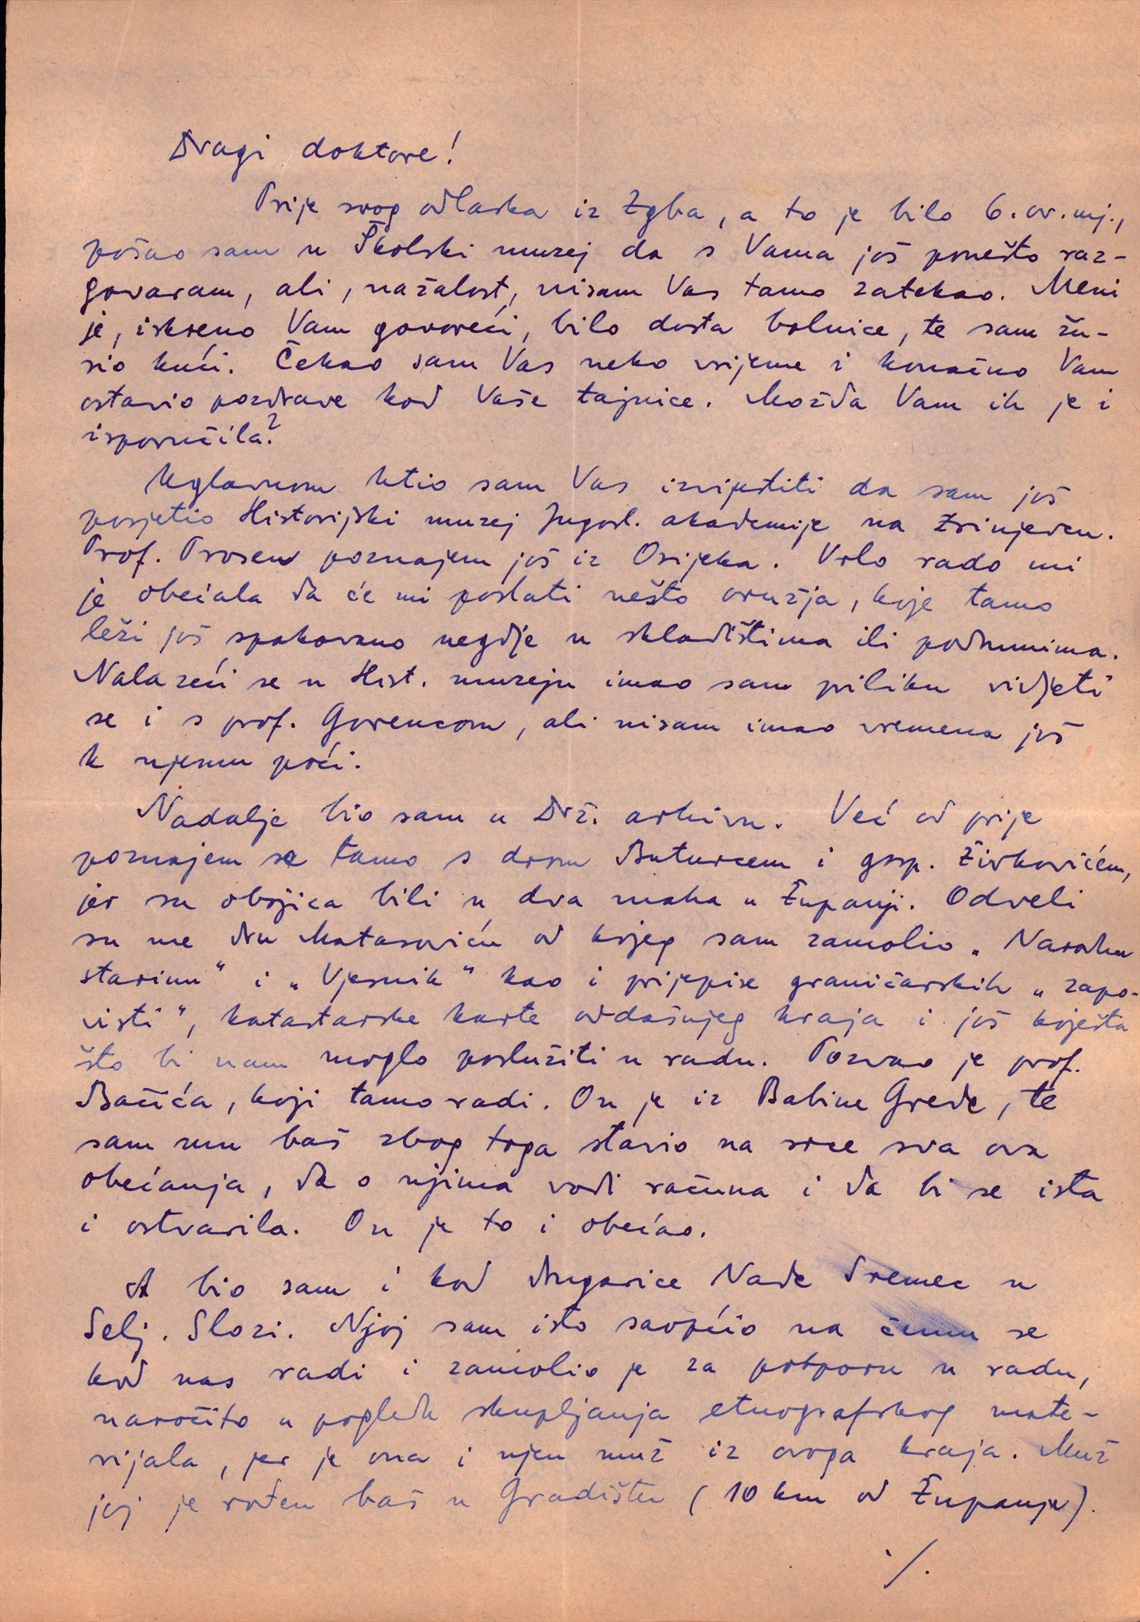 Dragi doktore!
Prije svog odlaska iz Zgba, a to je bilo 6. ov. mj.,
pošao sam u Školski muzej da s Vama još ponešto raz-
govaram, ali, nažalost, nisam Vas tamo zatekao. Meni
je, iskreno Vam govoreći, bilo dosta bolnice, te sam žu-
rio kući. Čekao sam Vas neko vrijeme i konačno Vam
ostavio pozdrave kod Vaše tajnice. Možda Vam ih je i
isporučila?
Uglavnom htio sam Vas izvijestiti da sam još
posjetio Historijski muzej Jugosl. akademije na Zrinjevcu.
Prof. Prosen poznajem još iz Osijeka. Vrlo rado mi
je obećala da će mi poslati nešto oružja, koje tamo
leži još spakovano negdje u skladištima ili podrumima.
Nalazeći se u Hist. muzeju imao sam priliku vidjeti
se i s prof. Gorencom, ali nisam imao vremena još
k njemu poći.
Nadalje bio sam u Drž. arhivu. Već od prije
poznajem se tamo s drom Buturcem i gosp. Živkovićem,
jer su obojica bili u dva maha u Županji. Odveli
su me dru Matasoviću od kojeg sam zamolio „Narodnu
starinu" i „Vjesnik" kao i prijepise graničarskih „zapo-
visti", katastarske karte ovdašnjeg kraja i još koješta
što bi nam moglo poslužiti u radu. Pozvao je prof.
Bačića, koji tamo radi. On je iz Babine Grede, te
sam mu baš zbog toga stavio na srce sva ova
obećanja, da o njima vodi računa i da bi se ista
i ostvarila. On je to i obećao.
A bio sam i kod drugarice Nade Sremec u
Selj. Slozi. Njoj sam isto saopćio na čemu se
kod nas radi i zamolio je za potporu u radu,
naročito u pogledu skupljanja etnografskog mate-
rijala, jer je ona i njen muž iz ovoga kraja. Muž
joj je rođen baš u Gradištu (10 km od Županje).
./.